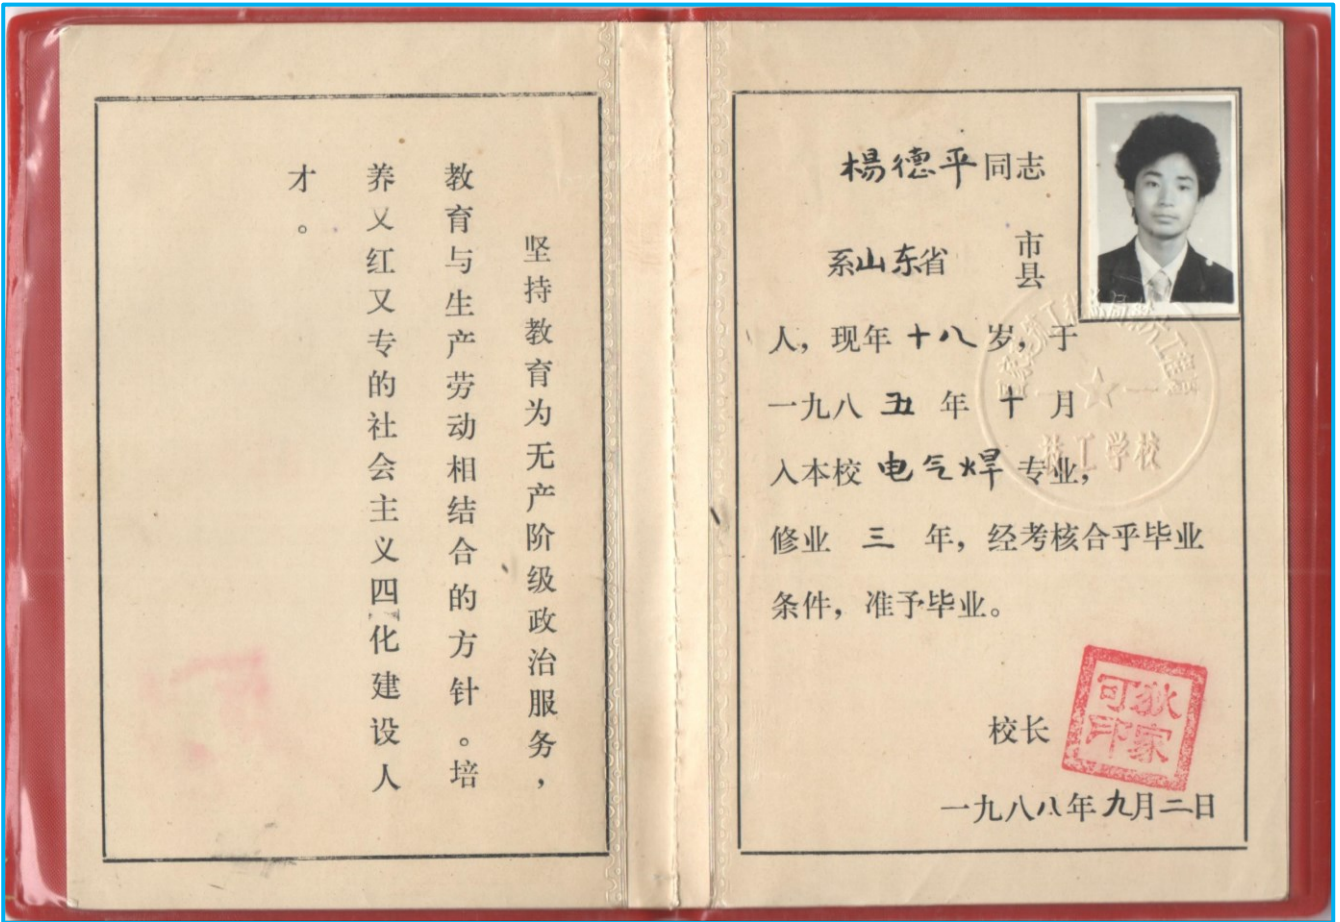 坚持教育为无产阶级政治服务，
教育与生产劳动相结合的方针。培
养又红又专的社会主义四化建设人
才。
楊德平同志
系山东省 市县
人，现年十八岁，于
一九八五年十月
入本校电气焊专业，
修业 三 年，经考核合乎毕业
条件，准予毕业。
校长
狄家可印
一九八八年九月二日
技工学校